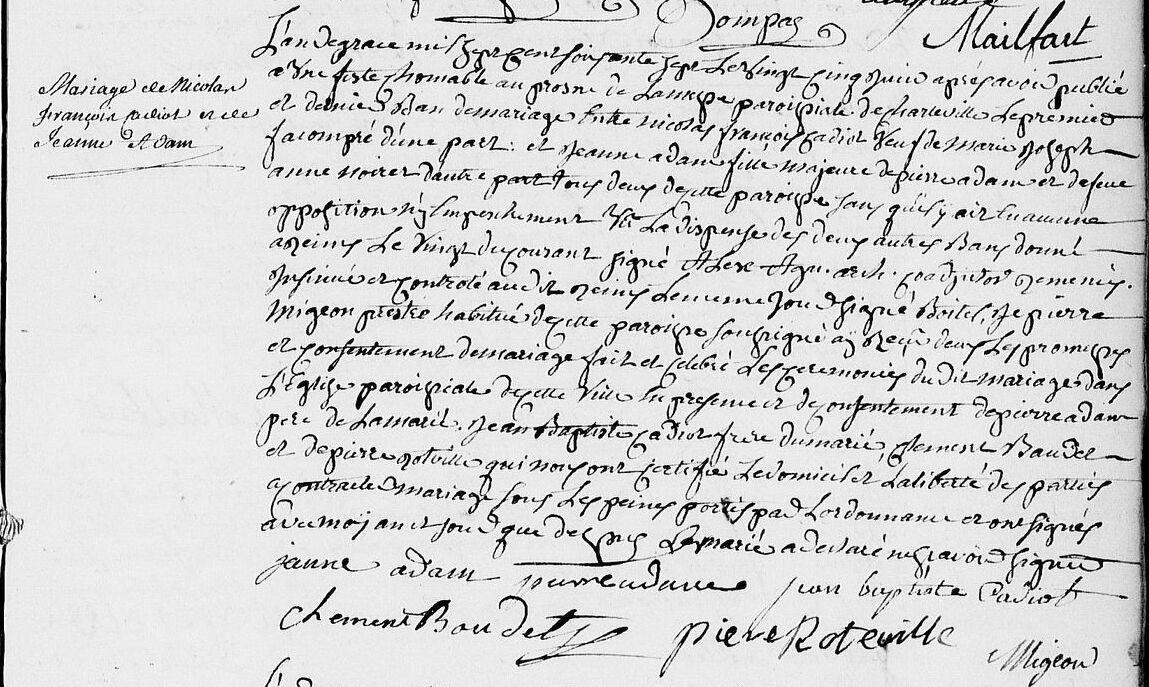 Dompaz
Mailfait
Mariage de Nicolas
françois cadiot et de
Jeanne Adam
L'an de grace mil sept cent soixante sept Le vingt cinq Juin apres avoir publié
a une feste chomable au prosne de La messe paroissiale de charleville Le premier
et dernier Ban de mariage Entre nicolas françois cadiot veuf de marie Joseph
facompré d'une part : et Jeanne adam fille majeure de pierre adam et de feue
anne noiret d'autre part tous deux de cette paroisse sans qu'il y ait eu aucune
opposition n'y Empechement Vu La dispense des deux autres Bans donné
a Reims Le vingt du courant signé Alex. Aug. arch. coadjutor Remensis.
Insinué et controlé audit Reims Le meme Jour signé Boitel, Je pierre
Migeon prestre habitué de cette paroisse soussigné aÿ Reçu d'eux Les promesses
et consentement de mariage fait et celebré Les ceremonies du dit mariage dans
L'Eglise paroissiale de cette ville En presence et de consentement de pierre adam
pere de La mariée. Jean Baptiste cadiot frere du marié, clement Baudet
et de pierre roteville qui nous ont certifié Le domicile et La liberté des parties
a contracter mariage sous Les peines portés par L'ordonnance et ont signés
avec moy an et jour que dessus Le marié a declaré ne sçavoir signer
jeanne adam pierre adam jean baptiste Cadiot
Clement Boudet pierre Roteville
Migeon
L'an de